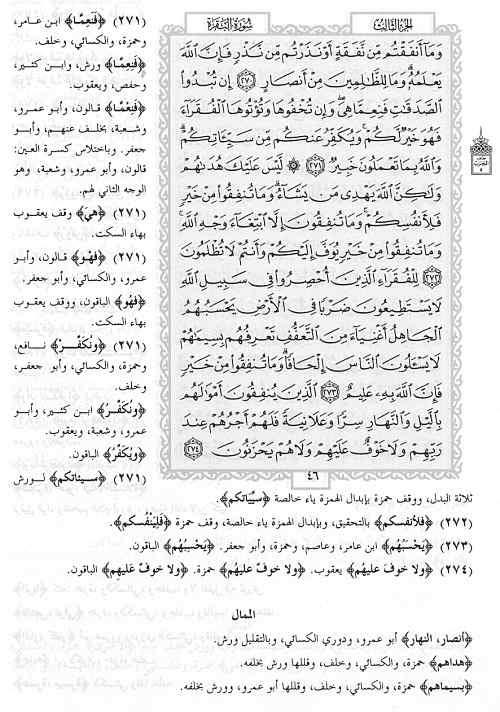 الجزء الثالث
سورة البقرة
وَمَآ أَنفَقْتُم مِّن نَّفَقَةٍ أَوْ نَذَرْتُم مِّن نَّذْرٍ فَإِنَّ ٱللَّهَ
يَعْلَمُهُۥ وَمَا لِلظَّٰلِمِينَ مِنْ أَنصَارٍ ٢٧٠ إِن تُبْدُوا۟
ٱلصَّدَقَٰتِ فَنِعِمَّا هِىَ وَإِن تُخْفُوهَا وَتُؤْتُوهَا ٱلْفُقَرَآءَ
فَهُوَ خَيْرٌ لَّكُمْ وَيُكَفِّرُ عَنكُم مِّن سَيِّـَٔاتِكُمْ
وَٱللَّهُ بِمَا تَعْمَلُونَ خَبِيرٌ ٢٧١ ۞ لَّيْسَ عَلَيْكَ هُدَىٰهُمْ
وَلَٰكِنَّ ٱللَّهَ يَهْدِى مَن يَشَآءُ وَمَا تُنفِقُوا۟ مِنْ خَيْرٍ
فَلِأَنفُسِكُمْ وَمَا تُنفِقُونَ إِلَّا ٱبْتِغَآءَ وَجْهِ ٱللَّهِ
وَمَا تُنفِقُوا۟ مِنْ خَيْرٍ يُوَفَّ إِلَيْكُمْ وَأَنتُمْ لَا تُظْلَمُونَ
٢٧٢ لِلْفُقَرَآءِ ٱلَّذِينَ أُحْصِرُوا۟ فِى سَبِيلِ ٱللَّهِ
لَا يَسْتَطِيعُونَ ضَرْبًا فِى ٱلْأَرْضِ يَحْسَبُهُمُ
ٱلْجَاهِلُ أَغْنِيَآءَ مِنَ ٱلتَّعَفُّفِ تَعْرِفُهُم بِسِيمَٰهُمْ
لَا يَسْـَٔلُونَ ٱلنَّاسَ إِلْحَافًا وَمَا تُنفِقُوا۟ مِنْ خَيْرٍ
فَإِنَّ ٱللَّهَ بِهِۦ عَلِيمٌ ٢٧٣ ٱلَّذِينَ يُنفِقُونَ أَمْوَٰلَهُم
بِٱلَّيْلِ وَٱلنَّهَارِ سِرًّا وَعَلَانِيَةً فَلَهُمْ أَجْرُهُمْ عِندَ
رَبِّهِمْ وَلَا خَوْفٌ عَلَيْهِمْ وَلَا هُمْ يَحْزَنُونَ ٢٧٤
٤٦
(٢٧١) ﴿فَنِعِمَّا﴾ ابن عامر،
وحمزة، والكسائي، وخلف.
﴿فَنِعِمَّا﴾ ورش، وابن كثير،
وحفص، ويعقوب.
﴿فَنِعِمَّا﴾ قالون، وأبو عمرو،
وشعبة، بخلف عنهم، وأبو
جعفر. وباختلاس كسرة العين:
قالون، وأبو عمرو، شعبة، وهو
الوجه الثاني لهم.
(٢٧١) ﴿هي﴾ وقف يعقوب
بهاء السكت.
(٢٧١) ﴿فهْو﴾ قالون، وأبو
عمرو، والكسائي، وأبو جعفر.
﴿فَهُو﴾ الباقون، ووقف يعقوب
بهاء السكت.
(٢٧١) ﴿ونُكَفِّرْ﴾ نافع،
وحمزة، والكسائي، وأبو جعفر،
وخلف.
﴿ونُكَفِّرُ﴾ ابن كثير، وأبو
عمرو، وشعبة، ويعقوب.
﴿ويُكَفِّرُ﴾ الباقون.
(٢٧١) ﴿سيئاتكم﴾ لورش
ثلاثة البدل، ووقف حمزة بإبدال الهمزة ياء خالصة ﴿سيِّياتكم﴾.
(٢٧٢) ﴿فلأنفسكم﴾ بالتحقيق، وبإبدال الهمزة ياء خالصة، وقف حمزة ﴿فلِيَنْفُسكم﴾.
(٢٧٣) ﴿يَحْسَبُهُم﴾ ابن عامر، وعاصم، وحمزة، وأبو جعفر. ﴿يَحْسِبُهُم﴾ الباقون.
(٢٧٤) ﴿ولا خوفَ عليهُم﴾ يعقوب. ﴿ولا خوفٌ عليهُم﴾ حمزة. ﴿ولا خوفٌ عَلَيهِم﴾ الباقون.
الممال
﴿أنصار، النهار﴾ أبو عمرو، ودوري الكسائي، وبالتقليل ورش.
﴿هداهم﴾ حمزة، والكسائي، وخلف، وقللها ورش بخلفه.
﴿بسيماهم﴾ حمزة، والكسائي، وخلف، وقللها أبو عمرو، وورش بخلفه.